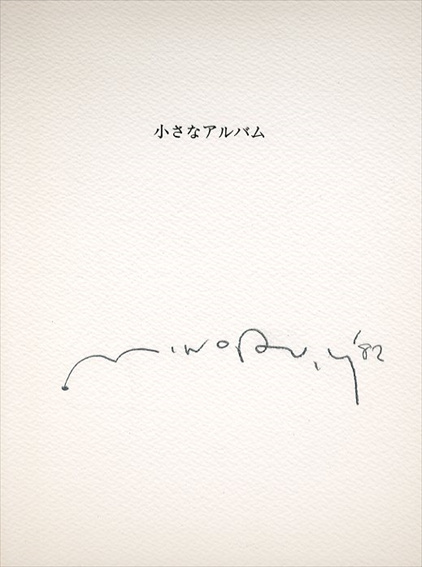 小さなアルバム
MINORU.Y '82